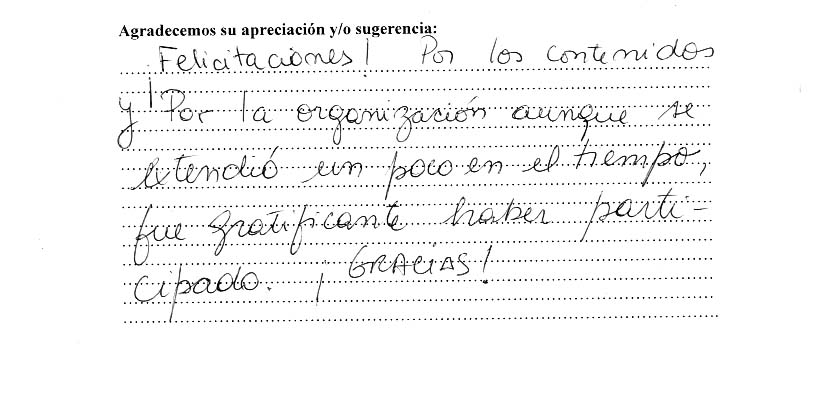 Agradecemos su apreciación y/o sugerencia:
¡Felicitaciones! Por los contenidos
y Por la organización aunque se
extendió un poco en el tiempo,
fue gratificante haber parti-
cipado. ¡GRACIAS!